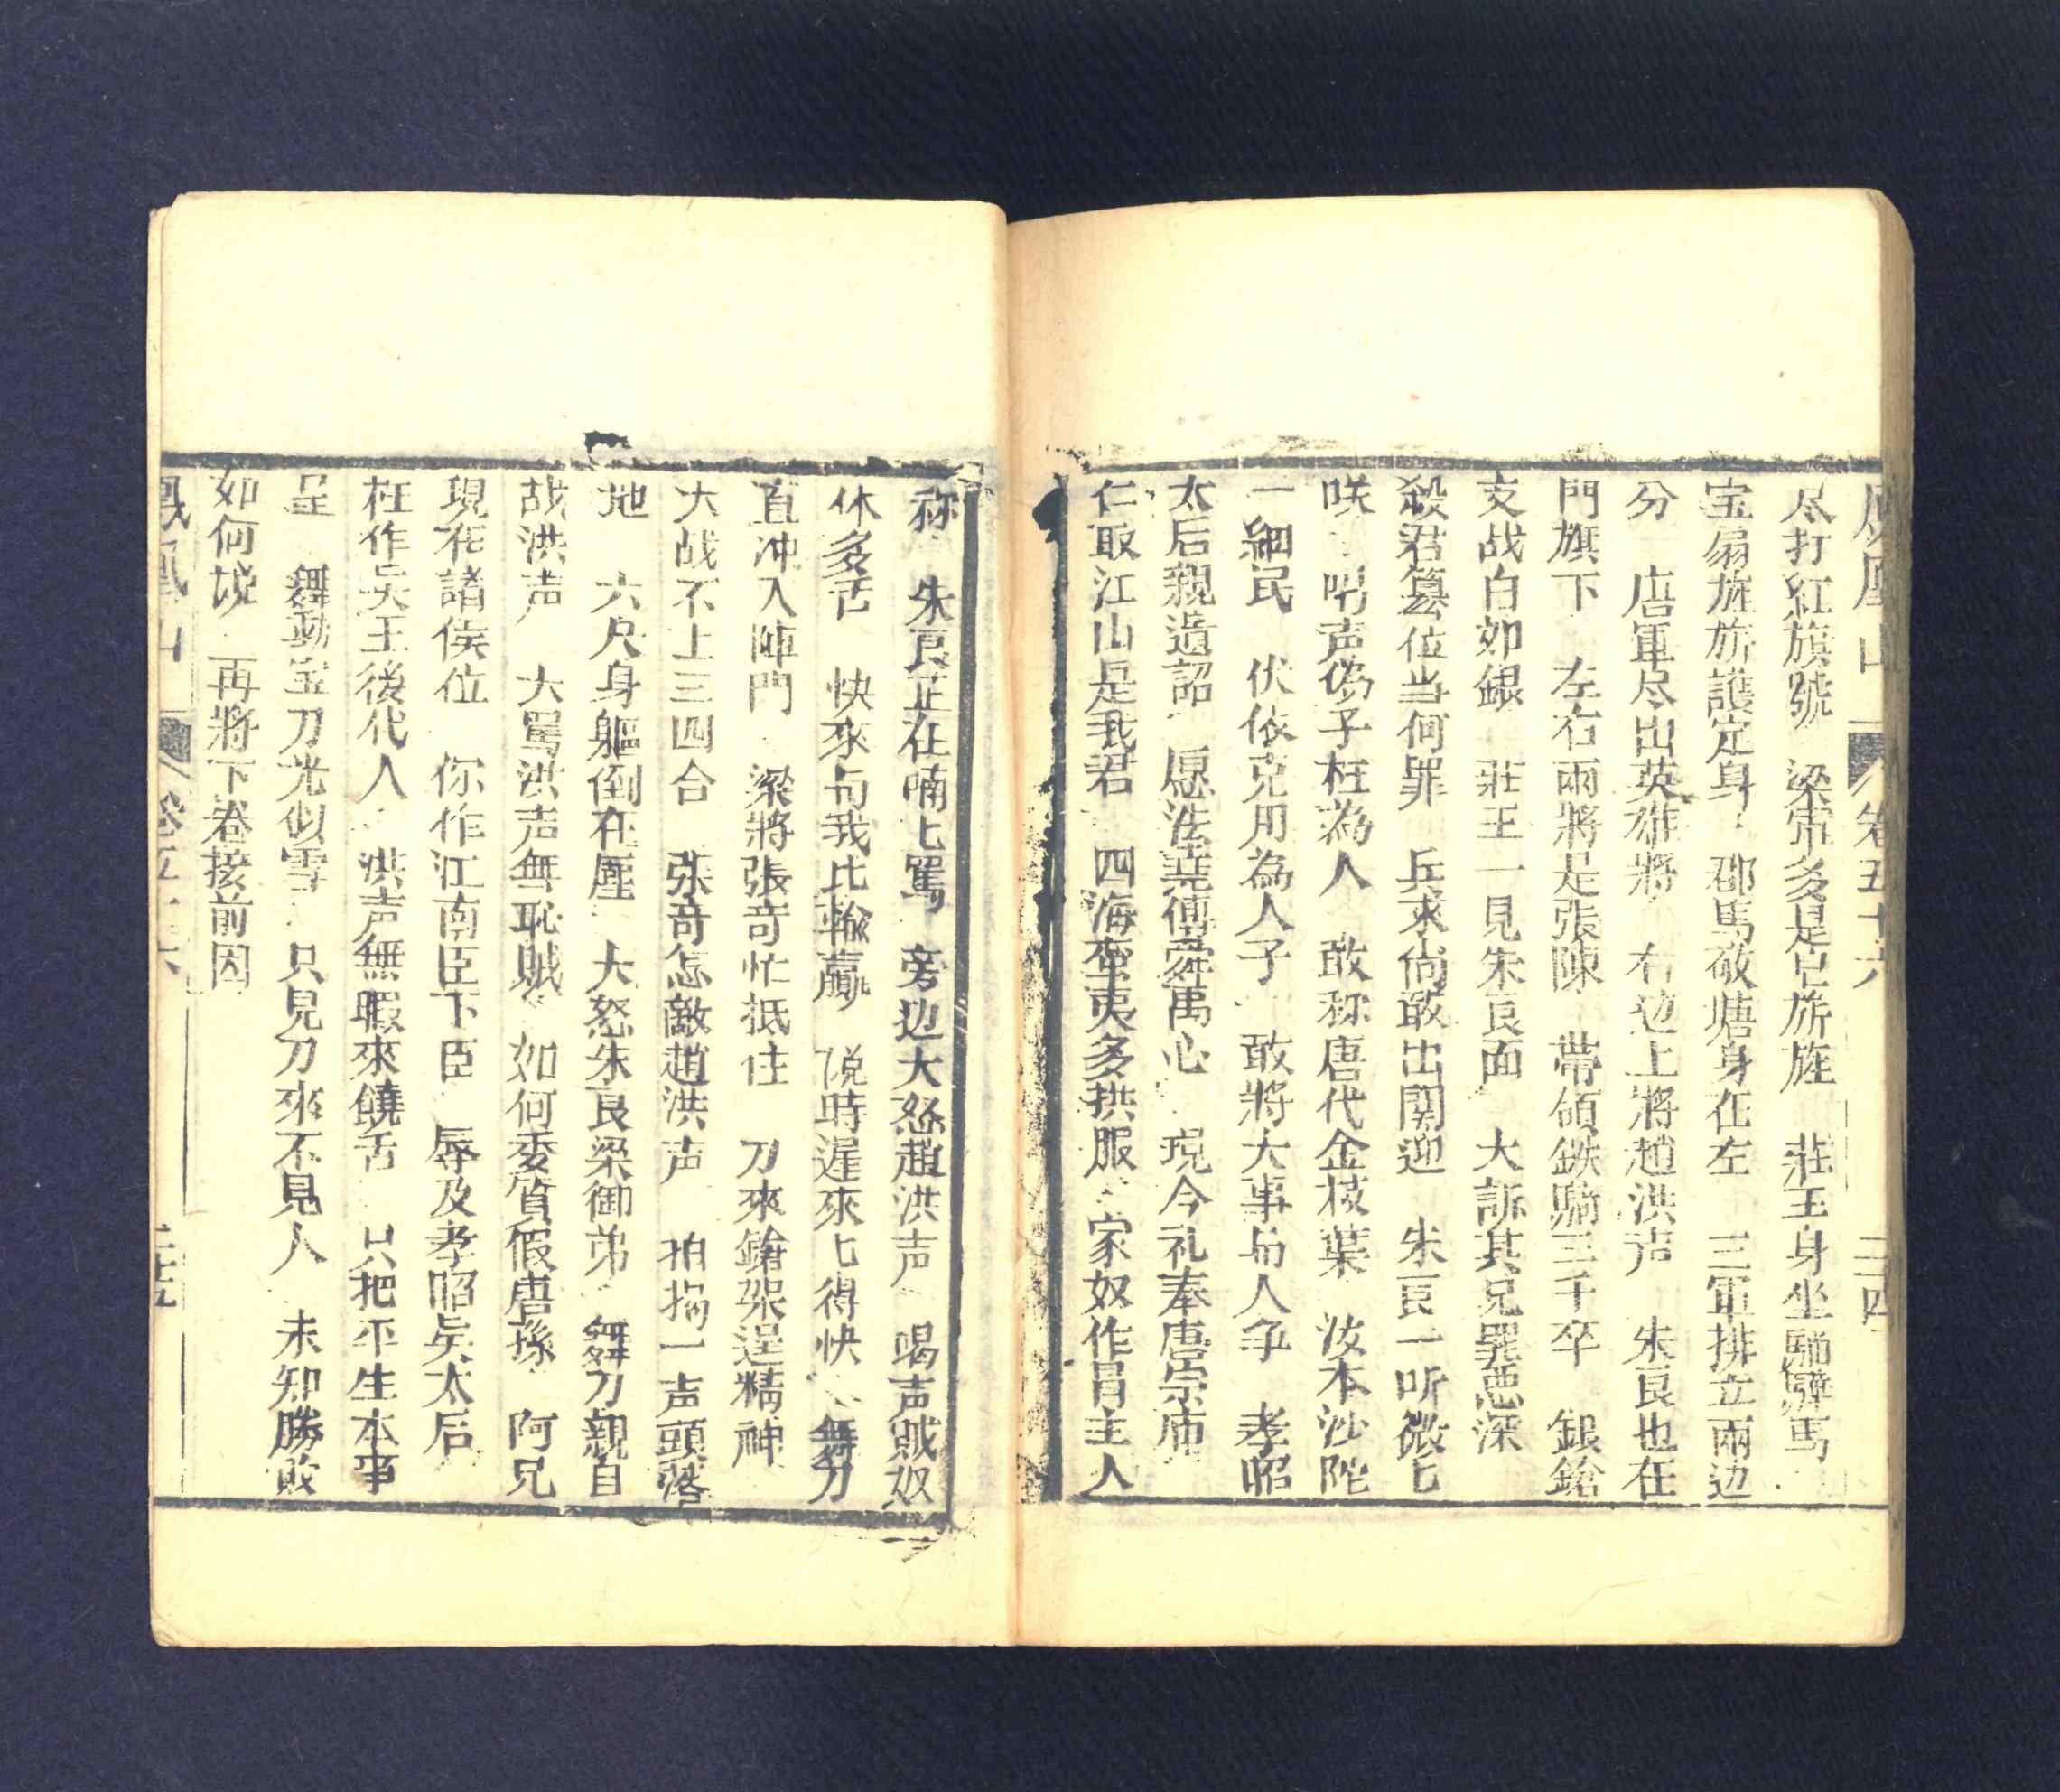 鳳凰山 卷五十六 二四
尽打紅旗號 梁帝多是皂旂旌 莊王身坐驌驦馬
宝扇旌旂護定身 郡馬敬塘身在左 三軍排立兩边
分 唐軍尽出英雄將 右边上將趙洪声 朱良也在
門旗下 左右兩將是張陳 帶領鉄騎三千卒 銀鎗
交战白如銀 莊王一見朱良面 大訴其兄罪惡深
殺君篡位当何罪 兵來尚敢出関迎 朱良一听微匕
咲 唱声偽子枉為人 敢称唐代金枝葉 汝本沙陀
一細民 伏依克用為人子 敢將大事与人争 孝昭
太后親遺詔 愿法堯傳舜禹心 現今礼奉唐宗庙
仁取江山是我君 四海蛮夷多拱服 家奴作冐主人
称 朱良正在喃匕罵 旁边大怒趙洪声 喝声贼奴
休多舌 快來与我比輸贏 説時遲來匕得快 舞刀
直冲入陣門 梁將張奇忙抵住 刀來鎗架逞精神
大战不上三四合 張奇怎敵趙洪声 拍搠一声頭落
地 六尺身軀倒在塵 大怒朱良梁御弟 舞刀親自
战洪声 大罵洪声無恥贼 如何委質假唐孫 阿兄
現在諸侯位 你作江南臣下臣 辱及孝昭吳太后
枉作吳王後代人 洪声無暇來饒舌 只把平生本事
呈 舞動宝刀光似雪 只見刀來不見人 未知勝敗
如何説 再將下卷接前因
鳳凰山 卷五十六 二十五